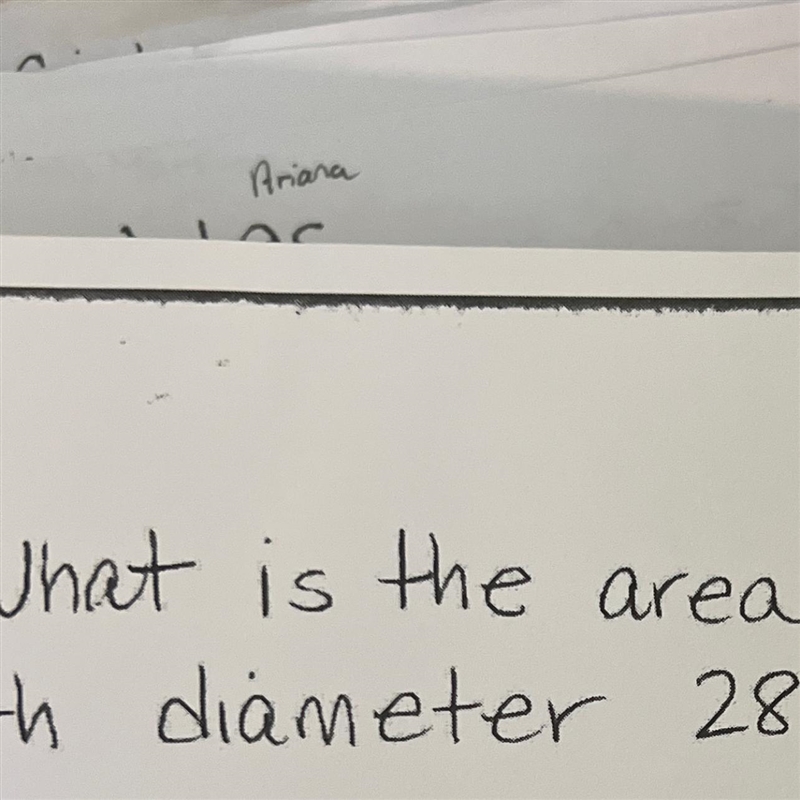 Ariana
What is the area
th diameter 28